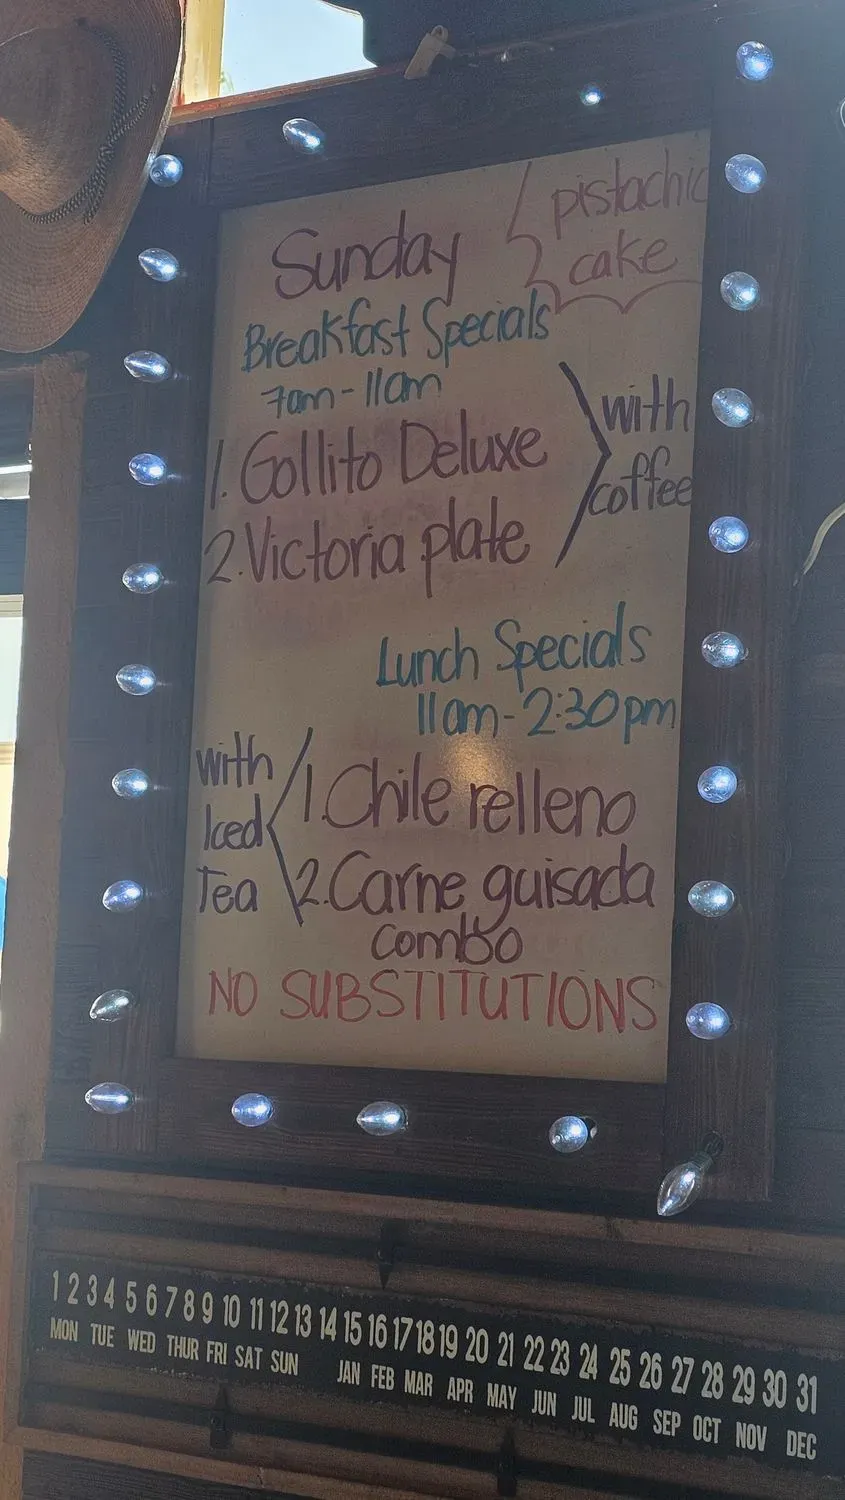 pistachio
cake
Sunday
Breakfast Specials
7am-11am
1. Gollito Deluxe
2. Victoria plate
with
coffee
Lunch Specials
11am-2:30pm
with
Iced
Tea
1. Chile relleno
2. Carne guisada
combo
NO SUBSTITUTIONS
1 2 3 4 5 6 7 8 9 10 11 12 13 14 15 16 17 18 19 20 21 22 23 24 25 26 27 28 29 30 31
MON TUE WED THUR FRI SAT SUN JAN FEB MAR APR MAY JUN JUL AUG SEP OCT NOV DEC